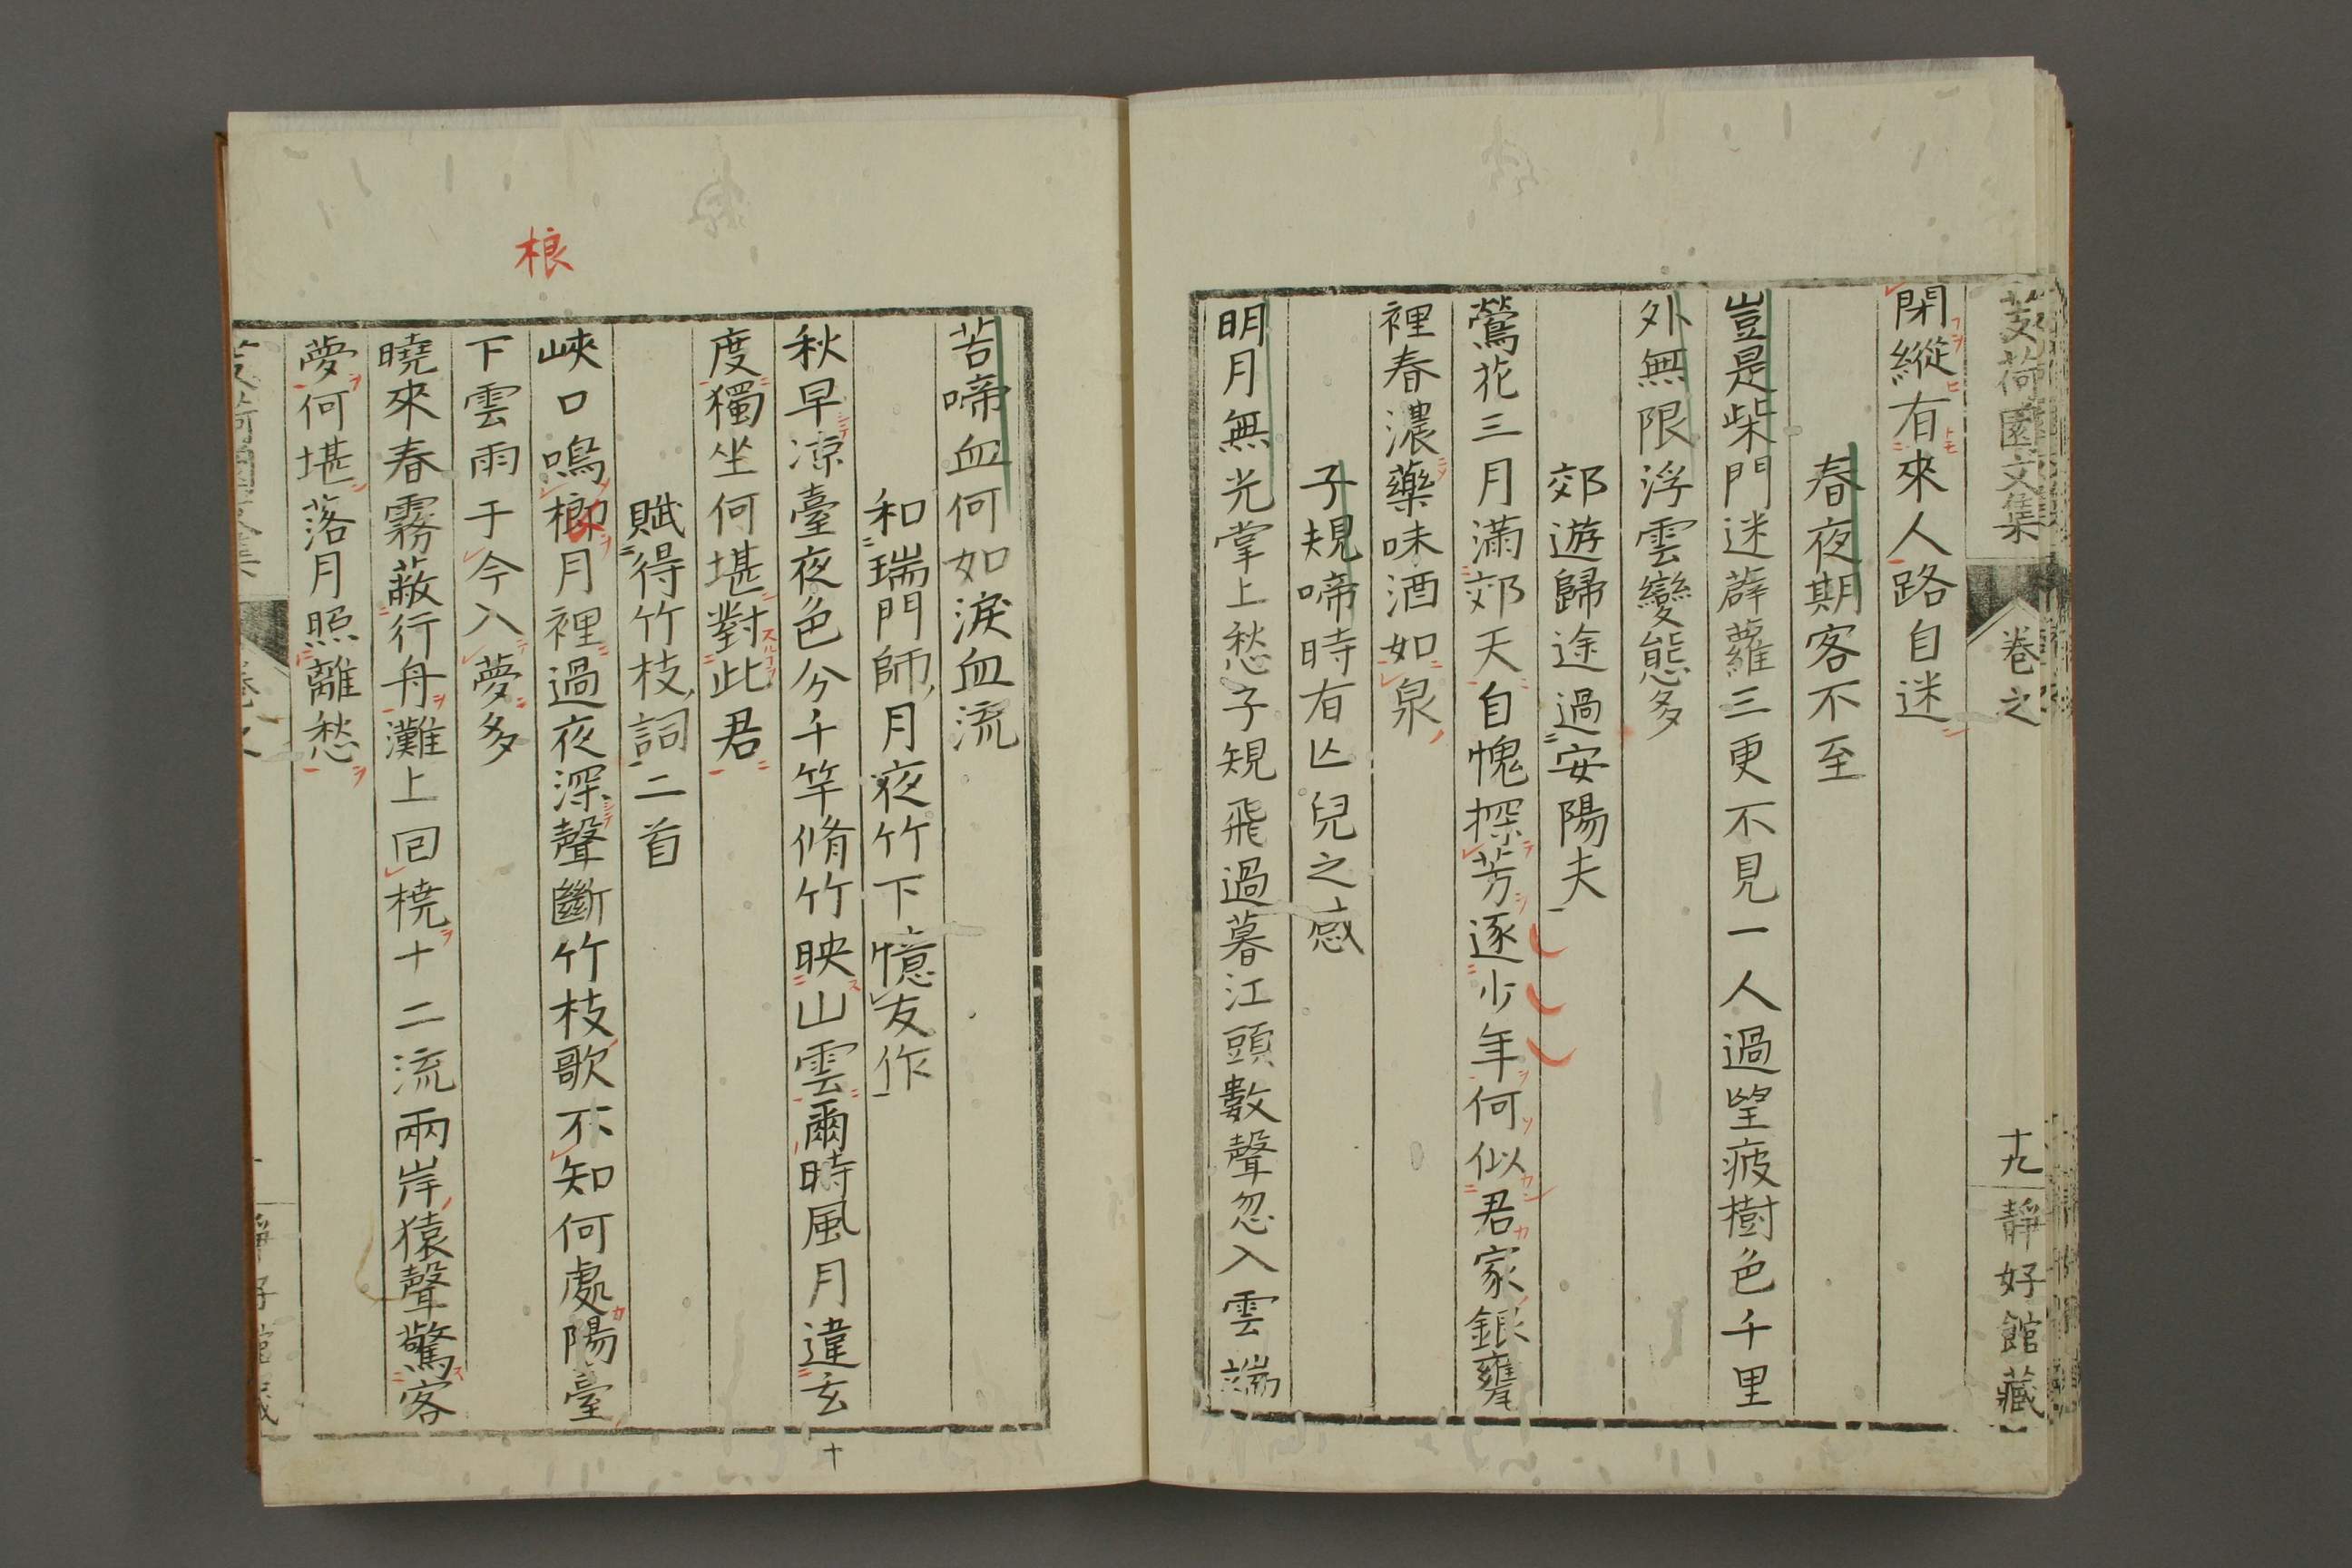 芰荷園文集 卷之 十九 靜好館藏
閉縱有來人路自迷
春夜期客不至
豈是柴門迷薜蘿三更不見一人過望疲樹色千里
外無限浮雲變態多
郊遊歸途過安陽夫
鶯花三月滿郊天自愧探芳逐少年何似君家銀甕
裡春濃藥味酒如泉
子規啼時有亾兒之感
明月無光掌上愁子規飛過暮江頭數聲忽入雲端
苦啼血何如淚血流
和瑞門師月夜竹下憶友作
秋早凉臺夜色分千竿脩竹映山雲爾時風月違玄
度獨坐何堪對此君
賦得竹枝詞二首
桹
峽口鳴榔月裡過夜深聲斷竹枝歌不知何處陽臺
下雲雨于今入夢多
曉來春霧蔽行舟灘上回橈十二流兩岸猿聲驚客
夢何堪落月照離愁
十